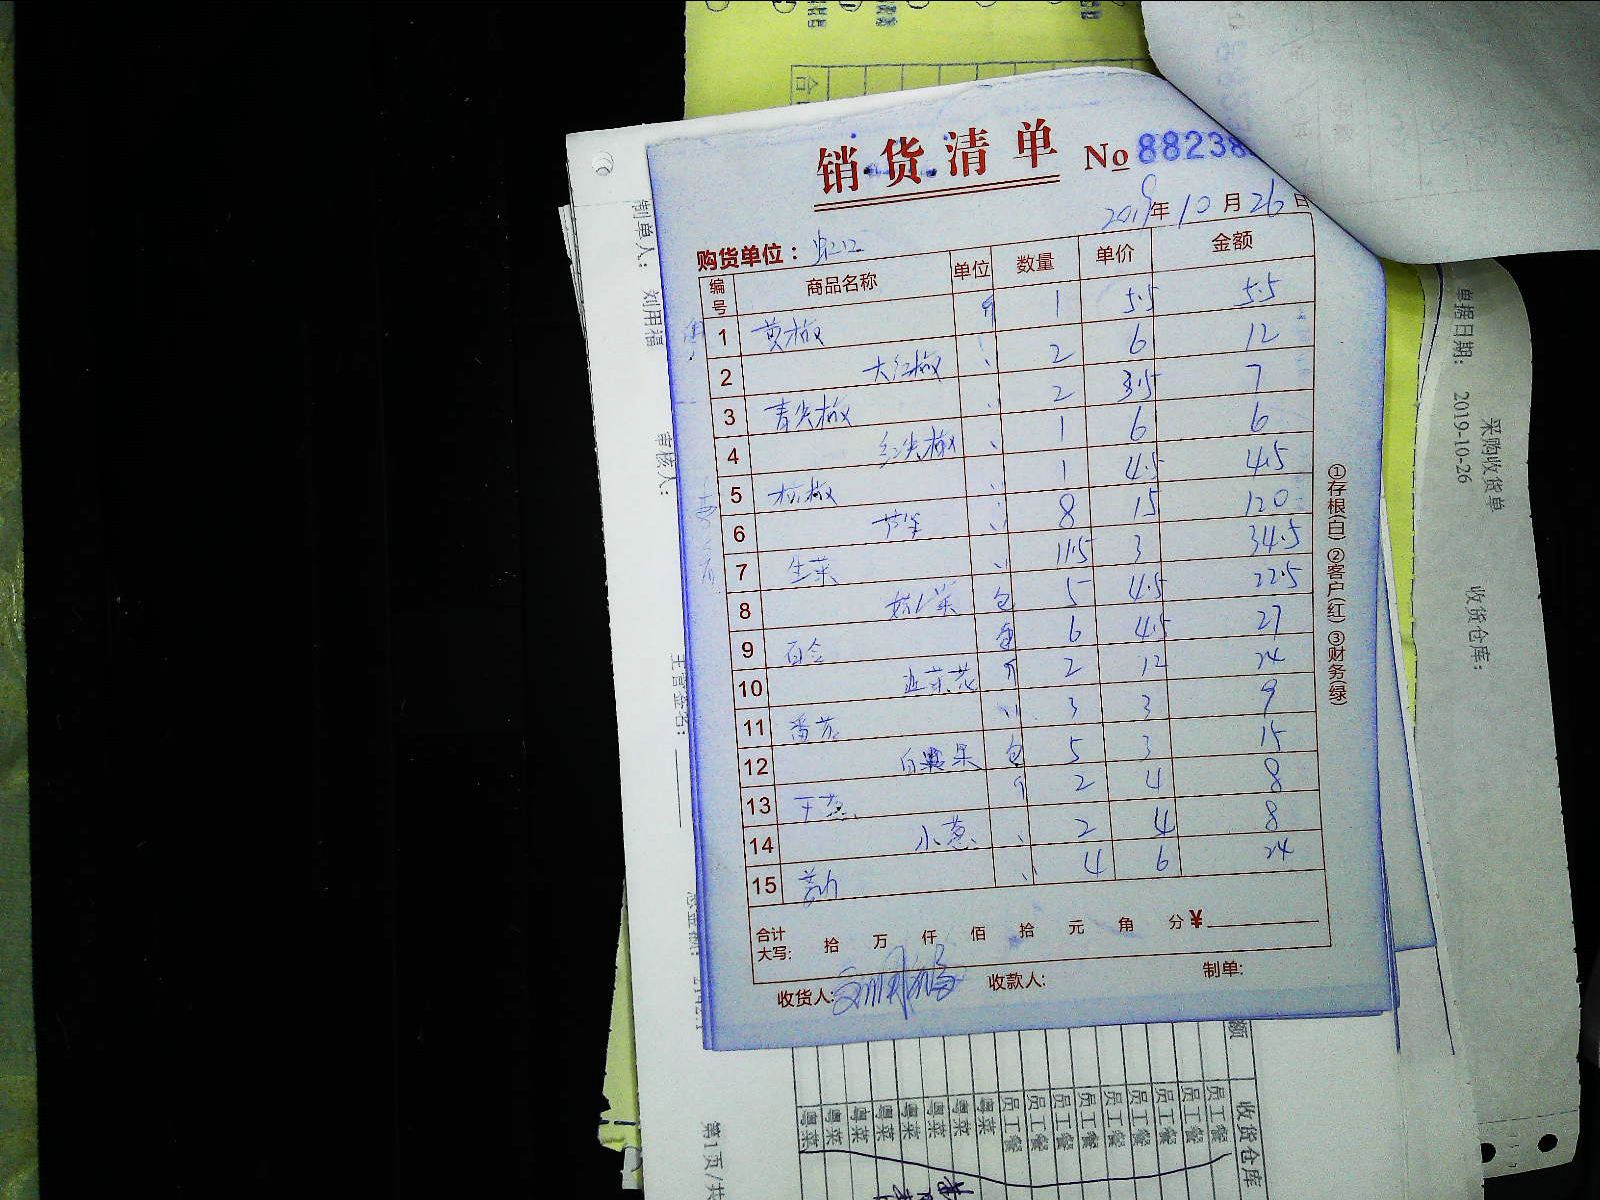 销货清单 No 88238
2019年10月26日
购货单位：
编号 商品名称 单位 数量 单价 金额
1 黄椒 个 1 5.5 5.5
2 大红椒 〃 2 6 12
3 青尖椒 〃 2 3.5 7
4 红尖椒 〃 1 6 6
5 〃 1 4.5 4.5
6 芦笋 〃 8 15 120
7 生菜 〃 11.5 3 34.5
8 包 5 4.5 22.5
9 百合 包 6 4.5 27
10 韭菜花 个 2 12 24
11 番茄 〃 3 3 9
12 白 果 包 5 3 15
13 干葱 个 2 4 8
14 小葱 〃 2 4 8
15 〃 4 6 24
合计大写: 拾 万 仟 佰 拾 元 角 分 ¥
收货人: 刘用福 收款人: 制单:
①存根(白) ②客户(红) ③财务(绿)
制单人： 刘用福
审核人：
主管签名：
采购收货单
单据日期： 2019-10-26
收货仓库：
收货仓库
员工餐
员工餐
员工餐
员工餐
员工餐
员工餐
员工餐
员工餐
员工餐
粤菜
粤菜
粤菜
粤菜
粤菜
粤菜
粤菜
粤菜
第1页/共